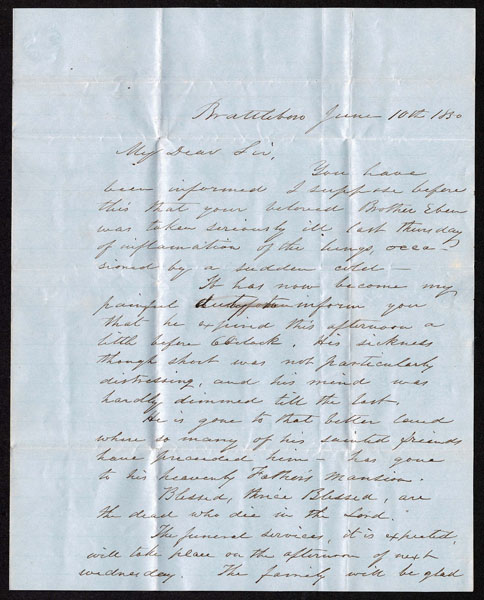 Brattleboro June 10th 1850
My Dear Sir,
You have
been informed I suppose before
this that your beloved Brother Eben
was taken seriously ill last thursday
of inflamation of the lungs, occa-
sioned by a sudden cold –
It has now become my
painful duty to inform you
that he expired this afternoon a
little before 6 o'clock. His sickness
though short was not particularly
distressing, and his mind was
hardly dimmed till the last
He is gone to that better land
where so many of his sainted friends
have preceeded him – has gone
to his heavenly Fathers Mansion.
"Blessed, thrice Blessed, are
the dead who die in the Lord."
The funeral services, it is expected,
will take place on the afternoon of next
wednesday. The family will be glad